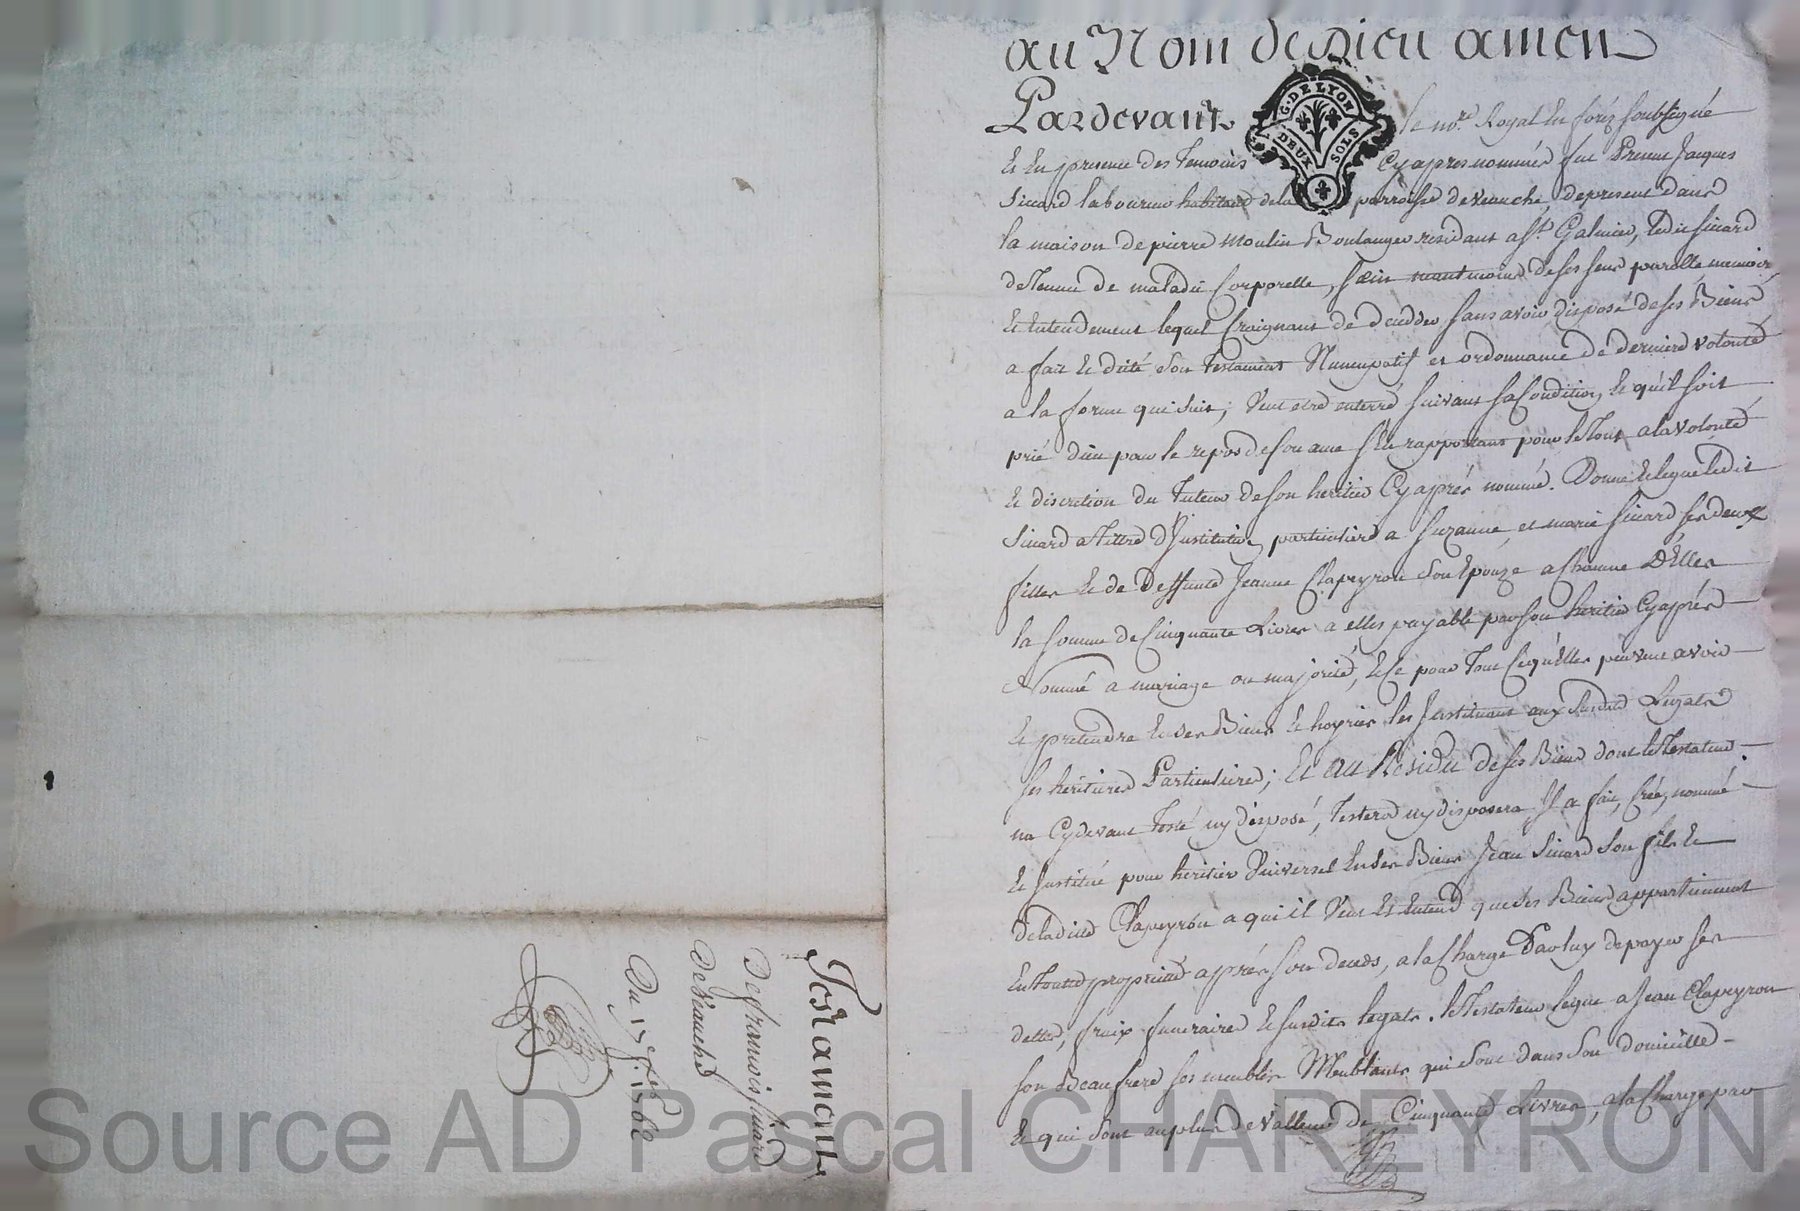 au Nom de Dieu amen
Pardevant le no.re Royal en foréz soubsigné
et en presence des temoins cy apres nommés fut present Jacques
Sicard laboureur habitant de la parroisse de veauche, de present dans
la maison de pierre moulin Boulanger residant a St. Galmier, ledit sicard
detenu de maladie corporelle, sain neantmoins de ses sens parolle memoire
et entendement lequel craignant de deceder sans avoir disposé de ses Biens
a fait et dicté son testament Nuncupatif et ordonnance de derniere volonté
a la forme qui suit; veut etre enterré suivant sa condition, et qu'il soit
prié dieu pour le repos de son ame s'en rapportant pour le tout a la volonté
et discretion du tuteur de son heritier cy aprés nommé. Donne et legue ledit
Sicard a tittre d'Institution particuliere a Suzanne, et marie Sicard ses deux
filles et de deffunte Jeanne Clapeyron son epouze a chacune D'Elles
la somme de cinquante Livres a elles payable par son heritier cy aprés
Nommé a mariage ou majorité, et ce pour tout ce qu'elles peuvent avoir
et pretendre en ses Biens et hoyries les Instituant aux susdits Legats
ses heritieres Particulieres; Et au Residu de ses Biens dont le testateur
na cy devant testé ny disposé, testera ny disposera Il a fait, créé, nommé
et Institué pour heritier Universel en ses Biens Jean Sicard son fils et
de ladite Clapeyron a qui il veut et entend que ses Biens appartiennent
en toutte proprieté aprés son decés, a la charge par luy de payer ses
dettes, fraix funeraires et susdits legats. le testateur legue a Jean Clapeyron
son Beaufrere ses meubles Meublants qui sont dans son domicille
et qui sont au plus de valleur de Cinquante Livres, a la charge par
G. DE LYON
DEUX SOLS
Testament
De francois sicard
De Veauche
Du 17e 7bre 1762
Source AD Pascal CHAREYRON